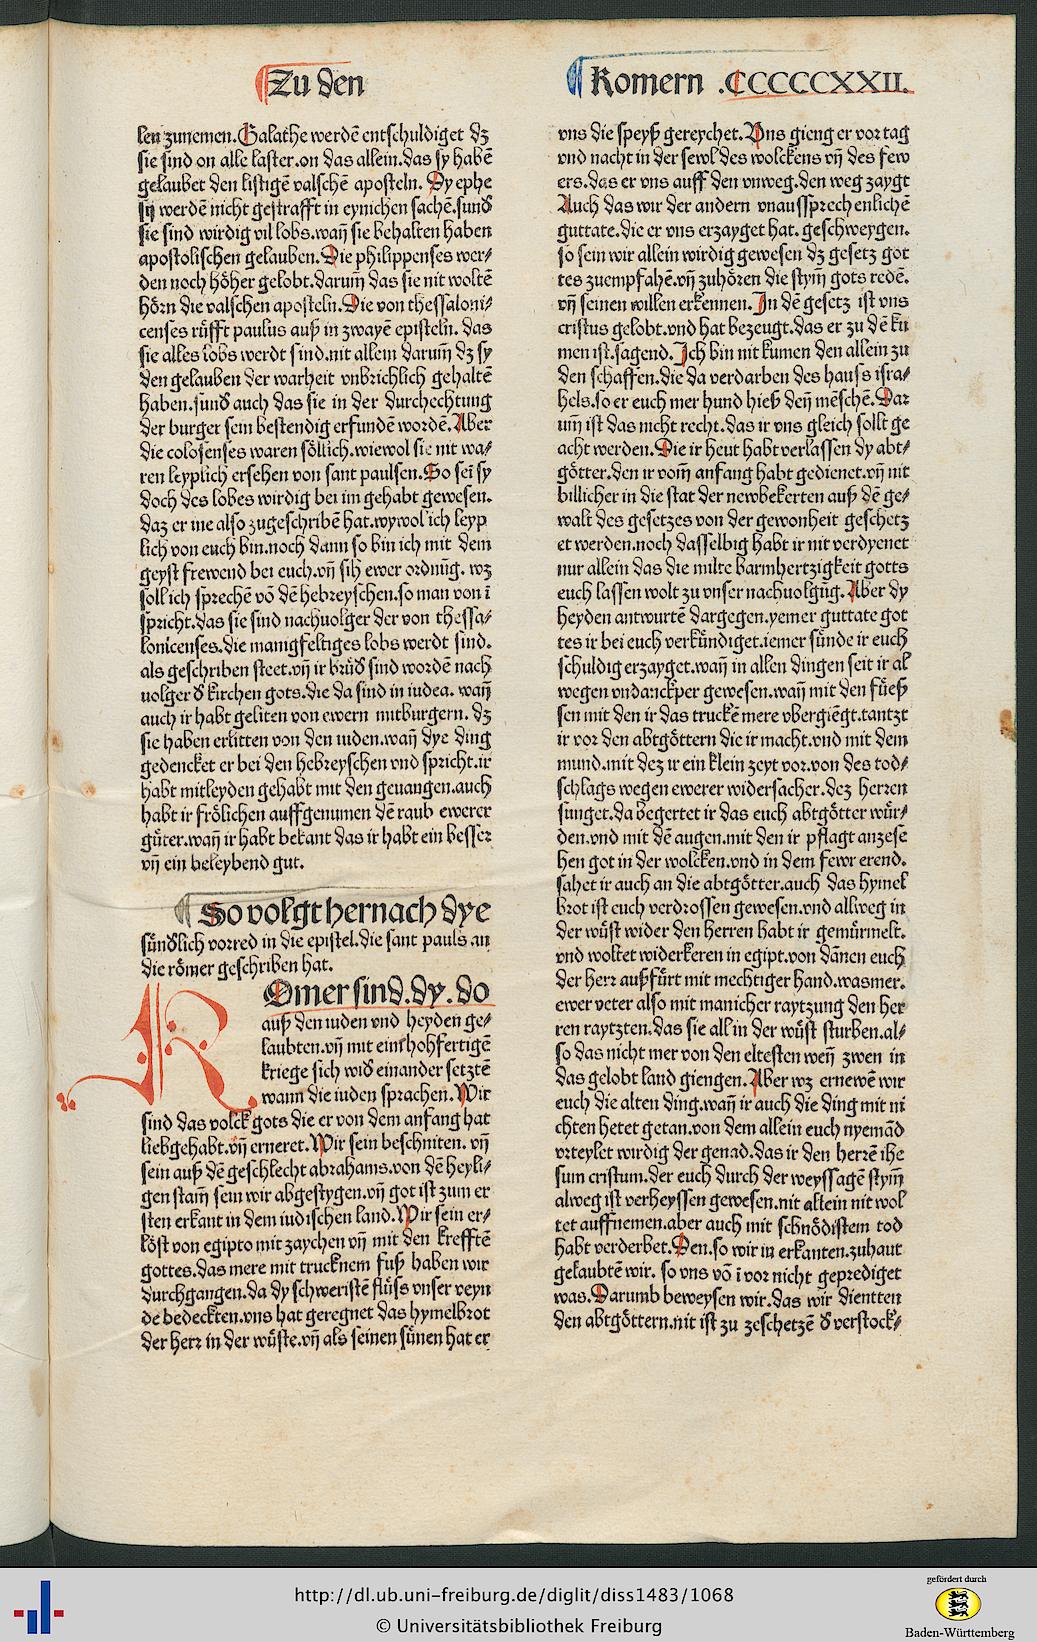 Zu den
len zunemen. Galathe werdē entschuldiget dz
sie sind on alle laster. on das allein. das sy habē
gelaubet den listigē valschē aposteln. Dy ephe
sij werdē nicht gestrafft in eynichen sachē. sund̄
sie sind wirdig vil lobs. wañ sie behalten haben
apostolischen gelauben. Die philippenses wer⸗
den noch höher gelobt. darum̄ das sie nit woltē
hörn die valschen aposteln. Die von thessaloni⸗
censes rüfft paulus auß in zwayē episteln. das
sie alles lobs werdt sind. nit allein darum̄ dz sy
den gelauben der warheit vnbrichlich gehaltē
haben. sund̄ auch das sie in der durchechtung
der burger sein bestendig erfundē wordē. Aber
die colosenses waren söllich. wiewol sie nit wa⸗
ren leyplich ersehen von sant paulsen. So sei sy
doch des lobes wirdig bei im gehabt gewesen.
daz er ine also zugeschribē hat. wywol ich leyp
lich von euch bin. noch dann so bin ich mit dem
geyst frewend bei euch. vñ sih ewer ordnūg. wz
soll ich sprechē vō dē hebreyschen. so man von ī
spricht. das sie sind nachuolger der von thessa⸗
lonicenses. die manigfeltiges lobs werdt sind.
als geschriben steet. vñ ir brüd̄ sind wordē nach
uolger d̄ kirchen gots. die da sind in iudea. wañ
auch ir habt geliten von ewern mitburgern. dz
sie haben erlitten von den iuden. wañ dye ding
gedencket er bei den hebreyschen vnd spricht. ir
habt mitleyden gehabt mit den geuangen. auch
habt ir frölichen auffgenumen dē raub ewerer
güter. wañ ir habt bekant das ir habt ein besser
vñ ein beleybend gut.
So volgt hernach dye
sündlich vorred in die epistel. die sant pauls an
die römer geschriben hat.
ROmer sind. dy. do
auß den iuden vnd heyden ge⸗
laubten. vñ mit eim hohfertigē
kriege sich wid̄ einander setztē
wann die iuden sprachen. Wir
sind das volck gots die er von dem anfang hat
liebgehabt. vñ erneret. Wir sein beschniten. vñ
sein auß dē geschlecht abrahams. von dē heyli⸗
gen stam̄ sein wir abgestygen. vñ got ist zum er
sten erkant in dem iudischen land. Wir sein er⸗
löst von egipto mit zaychen vñ mit den krefftē
gottes. das mere mit trucknem fuß haben wir
durchgangen. da dy schweristē flüss vnser veyn
de bedeckten. vns hat geregnet das hymelbrot
der herr in der wüste. vñ als seinen sünen hat er
Romern .CCCCCXXII.
vns die speyß gereychet. Vns gieng er vor tag
vnd nacht in der sewl des wolckens vñ des few
ers. das er vns auff den vnweg. den weg zaygt
Auch das wir der andern vnaussprechenlichē
guttate. die er vns erzayget hat. geschweygen.
so sein wir allein wirdig gewesen dz gesetz got
tes zuempfahē. vñ zuhören die stym̄ gots redē.
vñ seinen willen erkennen. In dē gesetz ist vns
cristus gelobt. vnd hat bezeugt. das er zu dē kū
men ist. sagend. Ich bin nit kumen den allein zu
den schaffen. die da verdarben des hauss isra⸗
hels. so er euch mer hund hieß deñ mēschē. Dar
um̄ ist das nicht recht. das ir vns gleich sollt ge
acht werden. Die ir heut habt verlassen dy abt⸗
götter. den ir vom̄ anfang habt gedienet. vñ nit
billicher in die stat der newbekerten auß dē ge⸗
walt des gesetzes von der gewonheit geschetz
et werden. noch dasselbig habt ir nit verdyenet
nur allein das die milte barmhertzigkeit gotts
euch lassen wolt zu vnser nachuolgūg. Aber dy
heyden antwurtē dargegen. yemer guttate got
tes ir bei euch verkündiget. iemer sünde ir euch
schuldig erzayget. wañ in allen dingen seit ir al
wegen vndanckper gewesen. wañ mit den füeß
sen mit den ir das truckē mere vbergiēgt. tantzt
ir vor den abtgöttern die ir macht. vnd mit dem
mund. mit dez ir ein klein zeyt vor. von des tod⸗
schlags wegen ewerer widersacher. dez herren
sunget. da begertet ir das euch abtgötter wür⸗
den. vnd mit dē augen. mit den ir pflagt anzese
hen got in der wolcken. vnd in dem fewr erend.
sahet ir auch an die abtgötter. auch das hymel
brot ist euch verdrossen gewesen. vnd allweg in
der wüst wider den herren habt ir gemürmelt.
vnd woltet widerkeren in egipt. von dānen euch
der herr außfürt mit mechtiger hand. was mer.
ewer veter also mit manicher raytzung den her
ren raytzten. das sie all in der wüst sturben. al⸗
so das nicht mer von den eltesten weñ zwen in
das gelobt land giengen. Aber wz ernewē wir
euch die alten ding. wañ ir auch die ding mit ni
chten hetet getan. von dem allein euch nyemād
vrteylet wirdig der genad. das ir den herrē ihe
sum cristum. der euch durch der weyssagē stym̄
alweg ist verheyssen gewesen. nit allein nit wol
tet auffnemen. aber auch mit schnödistem tod
habt verderbet. Den. so wir in erkanten. zuhaut
gelaubtē wir. so vns vō ī vor nicht geprediget
was. Darumb beweysen wir. das wir dientten
den abtgöttern. nit ist zu zeschetzē d̄ verstock⸗
http://dl.ub.uni-freiburg.de/diglit/diss1483/1068
© Universitätsbibliothek Freiburg
gefördert durch
Baden-Württemberg